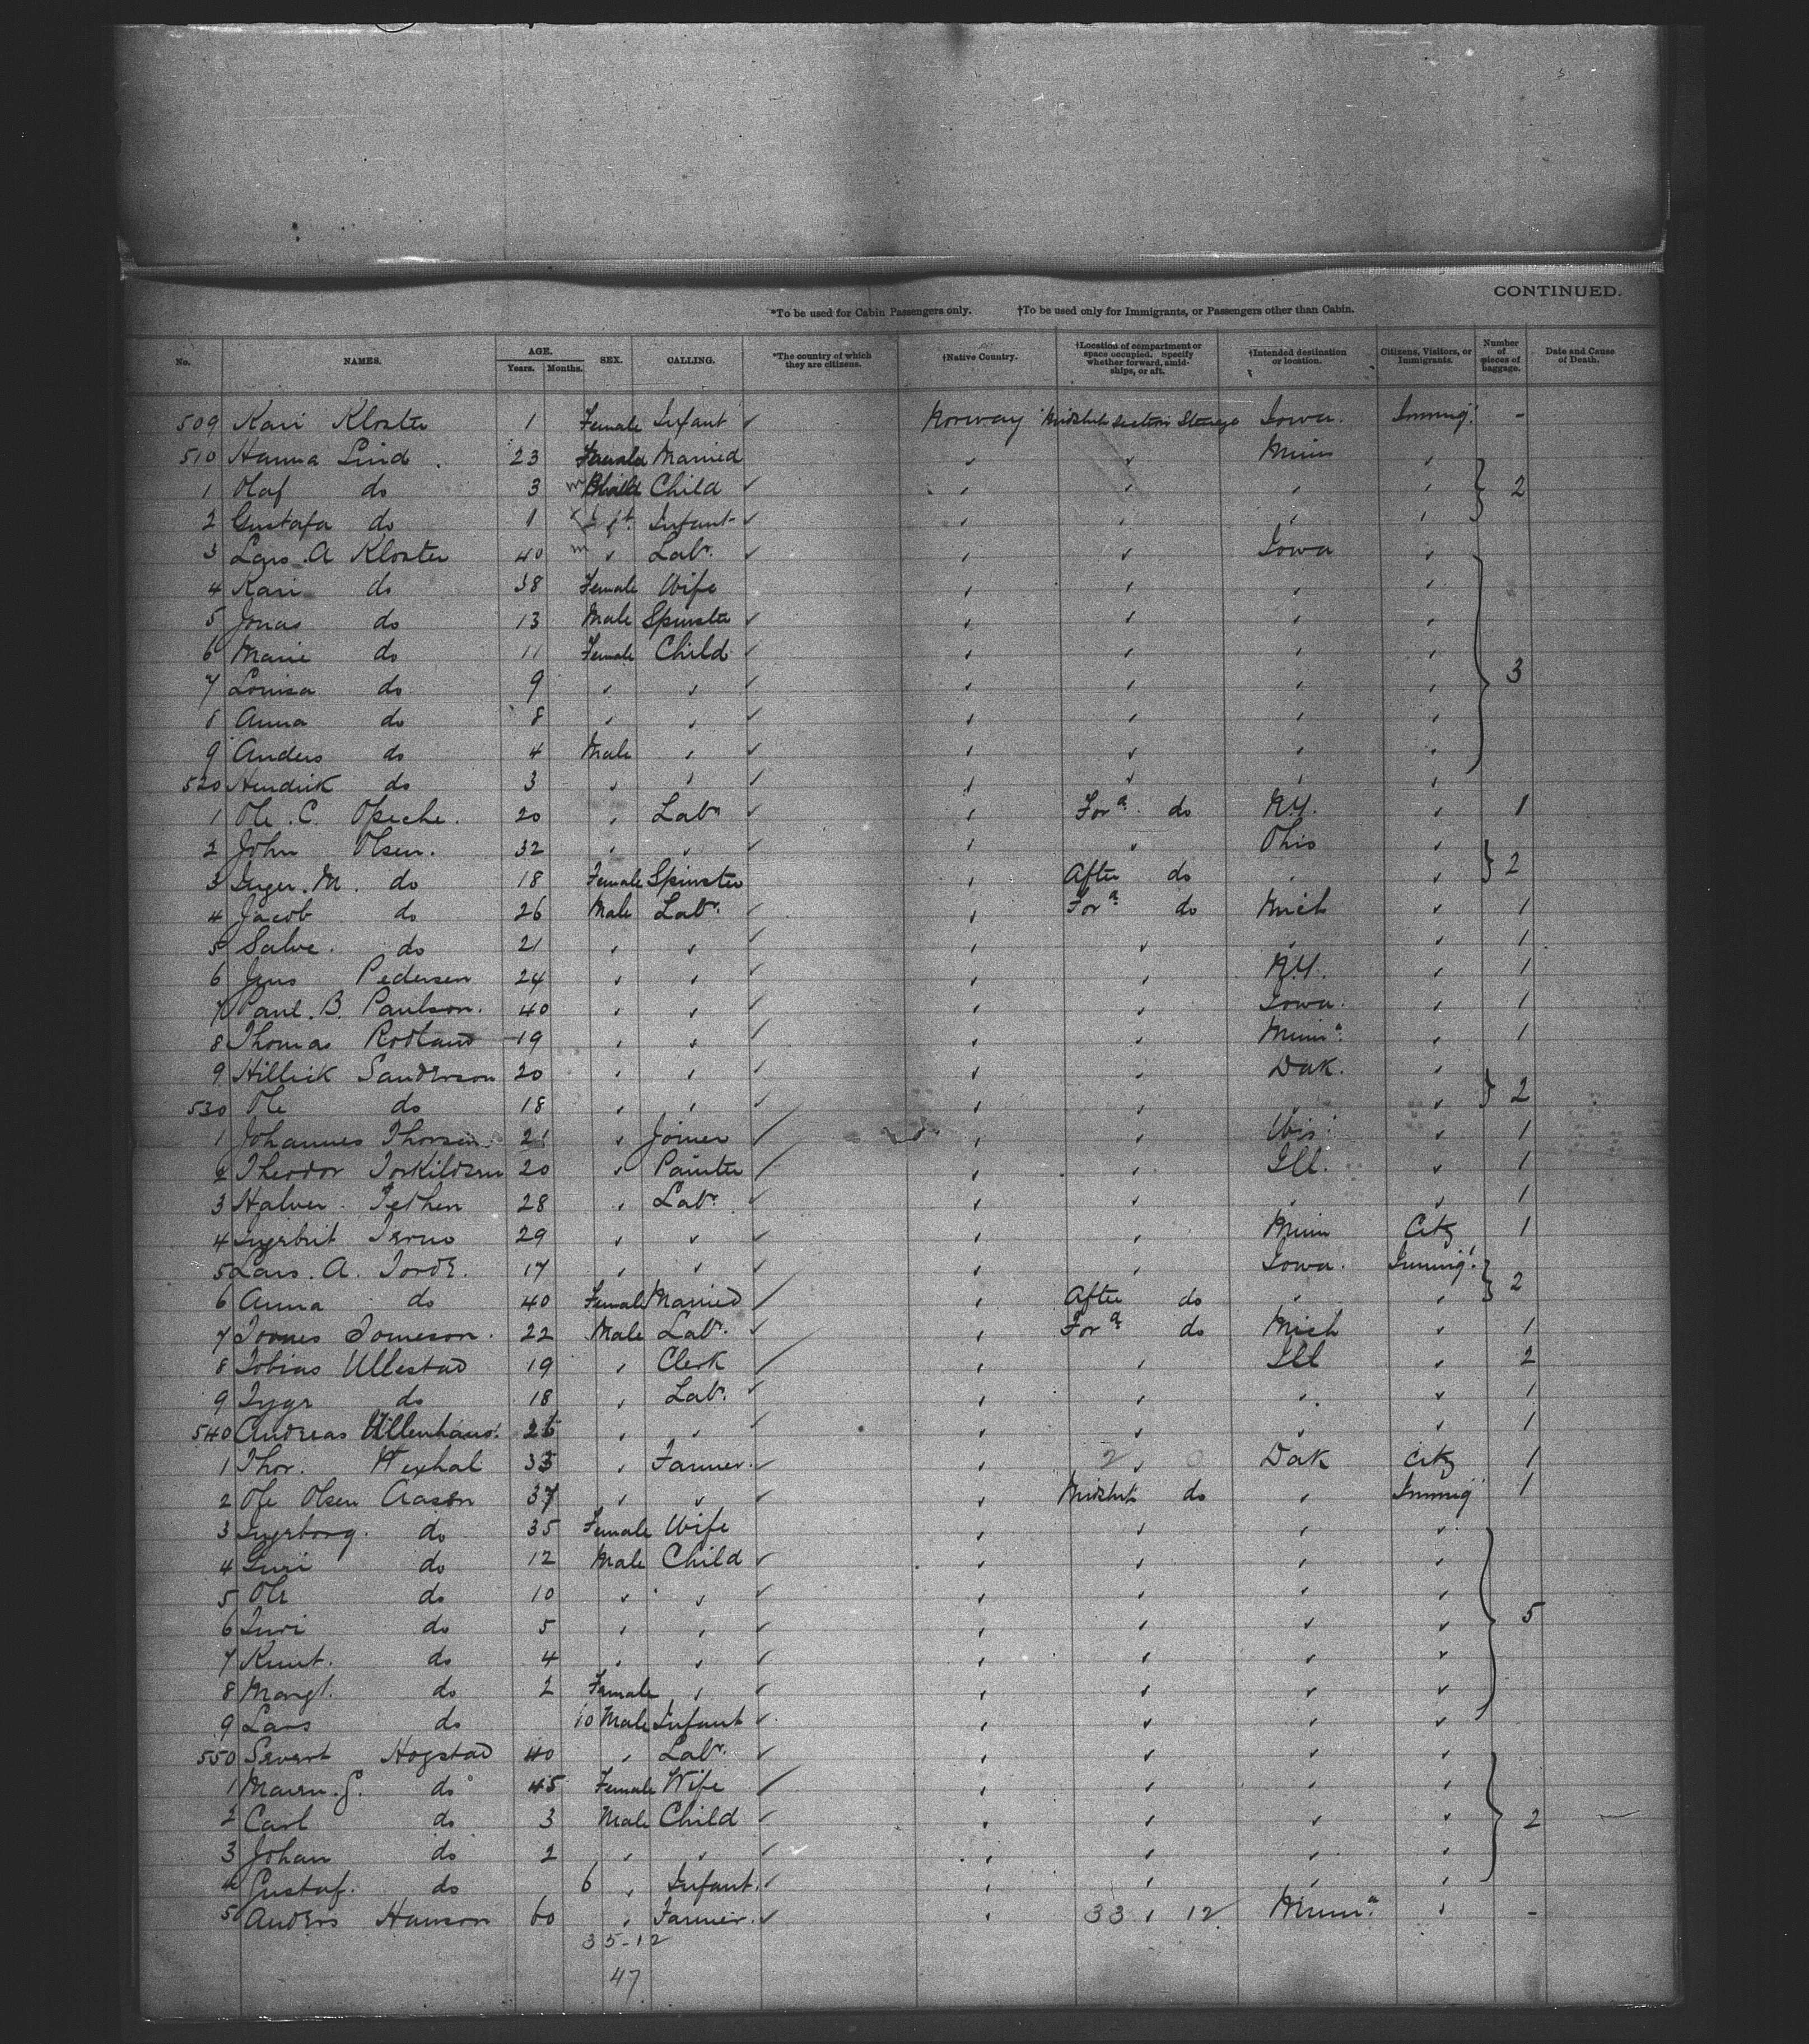 CONTINUED.
*To be used for Cabin Passengers only. †To be used only for Immigrants, or Passengers other than Cabin.
No. NAMES. AGE. Years. Months. SEX. CALLING. *The country of which they are citizens. †Native Country. †Location of compartment or space occupied. Specify whether forward, amidships, or aft. †Intended destination or location. Citizens, Visitors, or Immigrants. Number of pieces of baggage. Date and Cause of Death.
509 Kari Kloster 1 Female Infant ✓ Norway Section Steerage Iowa. Immigt. -
510 Hanna Lind 23 Female Married Minn
1 Olaf do 3 m Child ✓ 2
2 Gustafa do 1 Infant ✓
3 Lars A Kloster 40 m " Labr. ✓ " " Iowa "
4 Kari do 38 Female Wife " " " "
5 Jonas do 13 Male Spinster ✓ " " " "
6 Marie do 11 Female Child ✓ " " " "
7 Louisa do 9 " " ✓ " " " " 3
8 Anna do 8 " " ✓ " " " "
9 Anders do 4 Male " ✓ " " " "
520 Hendrik do 3 " " ✓ " " " "
1 Ole C. Opsche. 20 " Labr ✓ " Ford do N.Y. " 1
2 John Olsen. 32 " " ✓ " " Ohio "
3 Inger M. do 18 Female Spinster " After do " " 2
4 Jacob do 26 Male Labr. ✓ " Ford do Mich " 1
5 Salve. do 21 " " ✓ " " " " 1
6 Jens Pedersen 24 " " ✓ " " N.Y. " 1
7 Paul B. Paulson. 40 " " ✓ " " Iowa. " 1
8 Thomas Rodland 19 " " ✓ " " Minna. " 1
9 Hilleik Sanderson 20 " " ✓ " " Dak. "
530 Ole do 18 " " ✓ " " " " 2
1 Johannes Thorsen 21 " Joiner ✓ " " Wis. " 1
2 Theodor Torkildsen 20 " Painter ✓ " " Ill. " 1
3 Halver Tethen 28 " Labr. ✓ " " " " 1
4 Ingebrit 29 " " ✓ " " Minn Citz 1
5 Lars A. Torde. 17 " " ✓ " " Iowa. Immigt.
6 Anna do 40 Female Married ✓ " After do " " 2
7 Tonnes Tomeson. 22 Male Labr. ✓ " Ford do Mich " 1
8 Tobias Ullestad 19 " Clerk ✓ " " Ill " 2
9 do 18 " Labr. ✓ " " " " 1
540 Andreas 26 " " ✓ " " " " 1
1 Thor. 33 " Farmer. ✓ " 2 " 0 Dak Citz 1
2 Ole Olsen Aasen 37 " " ✓ " do " Immig 1
3 Ingeborg. do 35 Female Wife " " " "
4 do 12 Male Child ✓ " " " "
5 Ole do 10 " " ✓ " " " "
6 do 5 " " ✓ " " " " 5
7 Knut. do 4 " " ✓ " " " "
8 Margt. do 2 Female " ✓ " " " "
9 Lars do 10 Male Infant ✓ " " " "
550 Severt Hogstad 40 " Labr. ✓ " " " "
1 Maren G. do 45 Female Wife ✓ " " " "
2 Carl do 3 Male Child ✓ " " " " 2
3 Johan do 2 " " ✓ " " " "
4 Gustaf. do 6 " Infant. ✓ " " " "
5 Anders Hanson 60 " Farmer. ✓ " 33 " 12 Minna. " -
35-12
47